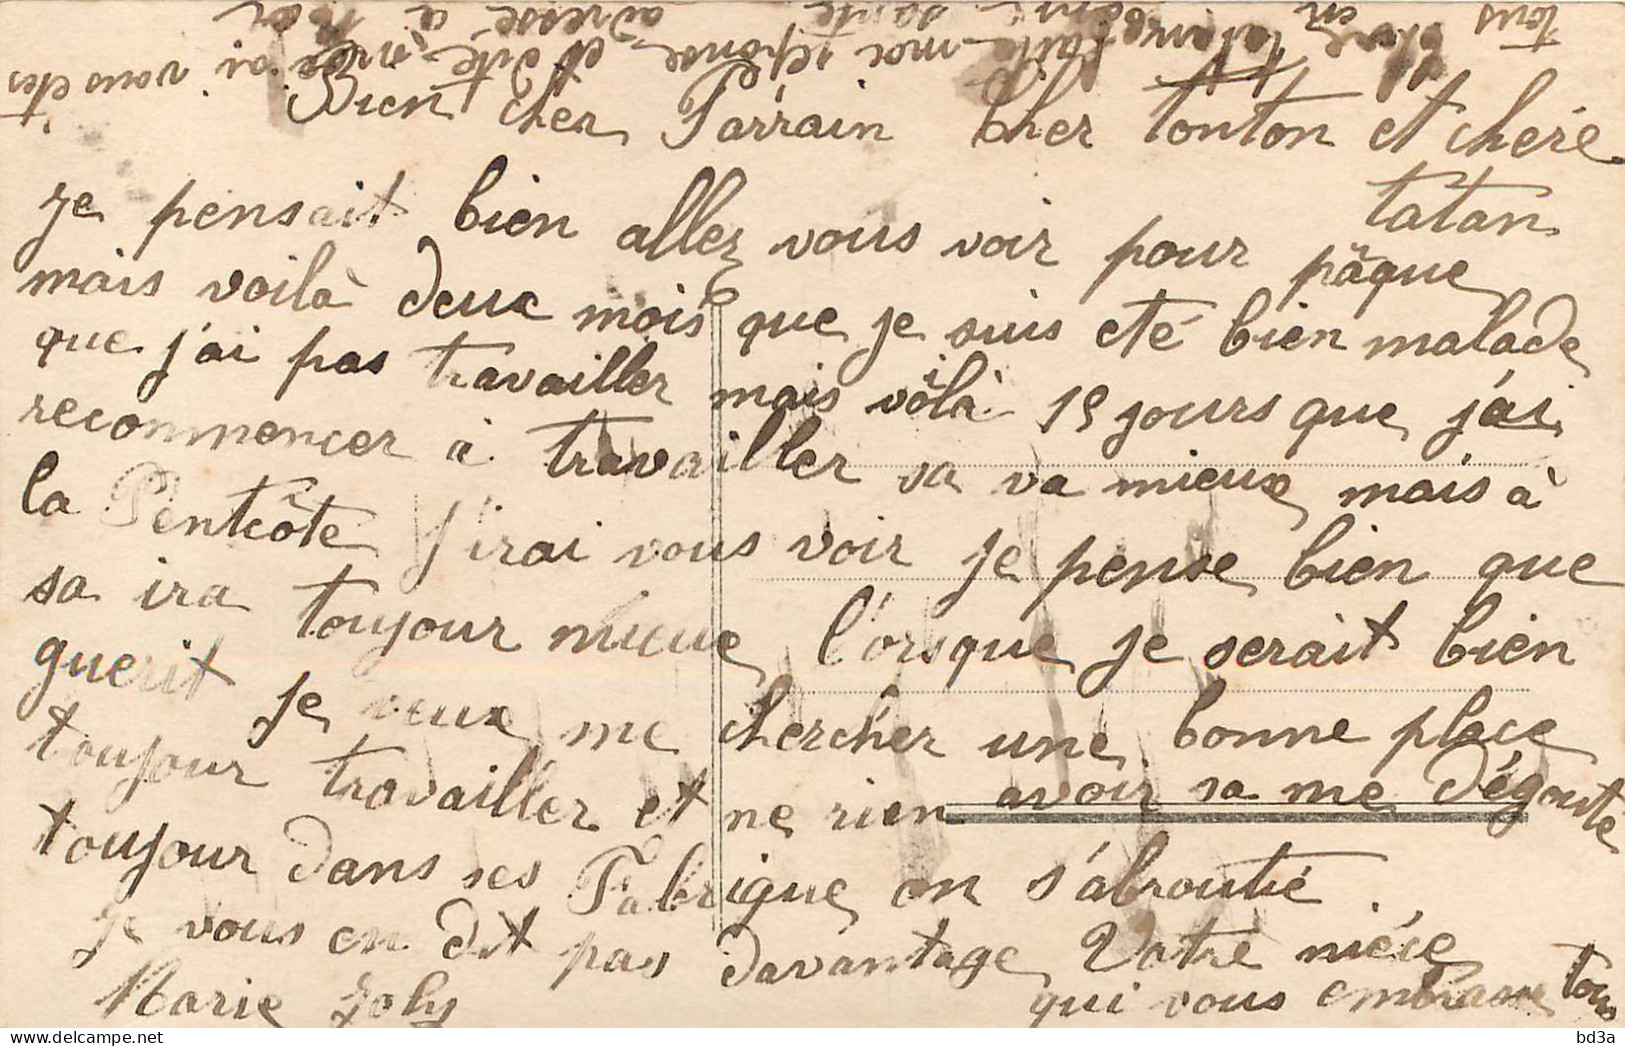 Bien cher Parrain Cher tonton et chére
tatan
Je pensait bien allez vous voir pour pâque
mais voilà deux mois que je suis eté bien malade
que j'ai pas travailler mais voilà 15 jours que j'ai
recommencer à travailler sa va mieux mais à
la Pentcôte j'irai vous voir je pense bien que
sa ira toujour mieux l'orsque je serait bien
guerit je veux me chercher une bonne place
toujour travailler et ne rien avoir sa me dégoute
toujour dans ses Fabrique on s'abroutie.
Je vous en dit pas davantage Votre niéce
Marie Joly qui vous embrasse tous
faite moi réponse et dite moi si vous etes
tous en santé adresse à
bd3a